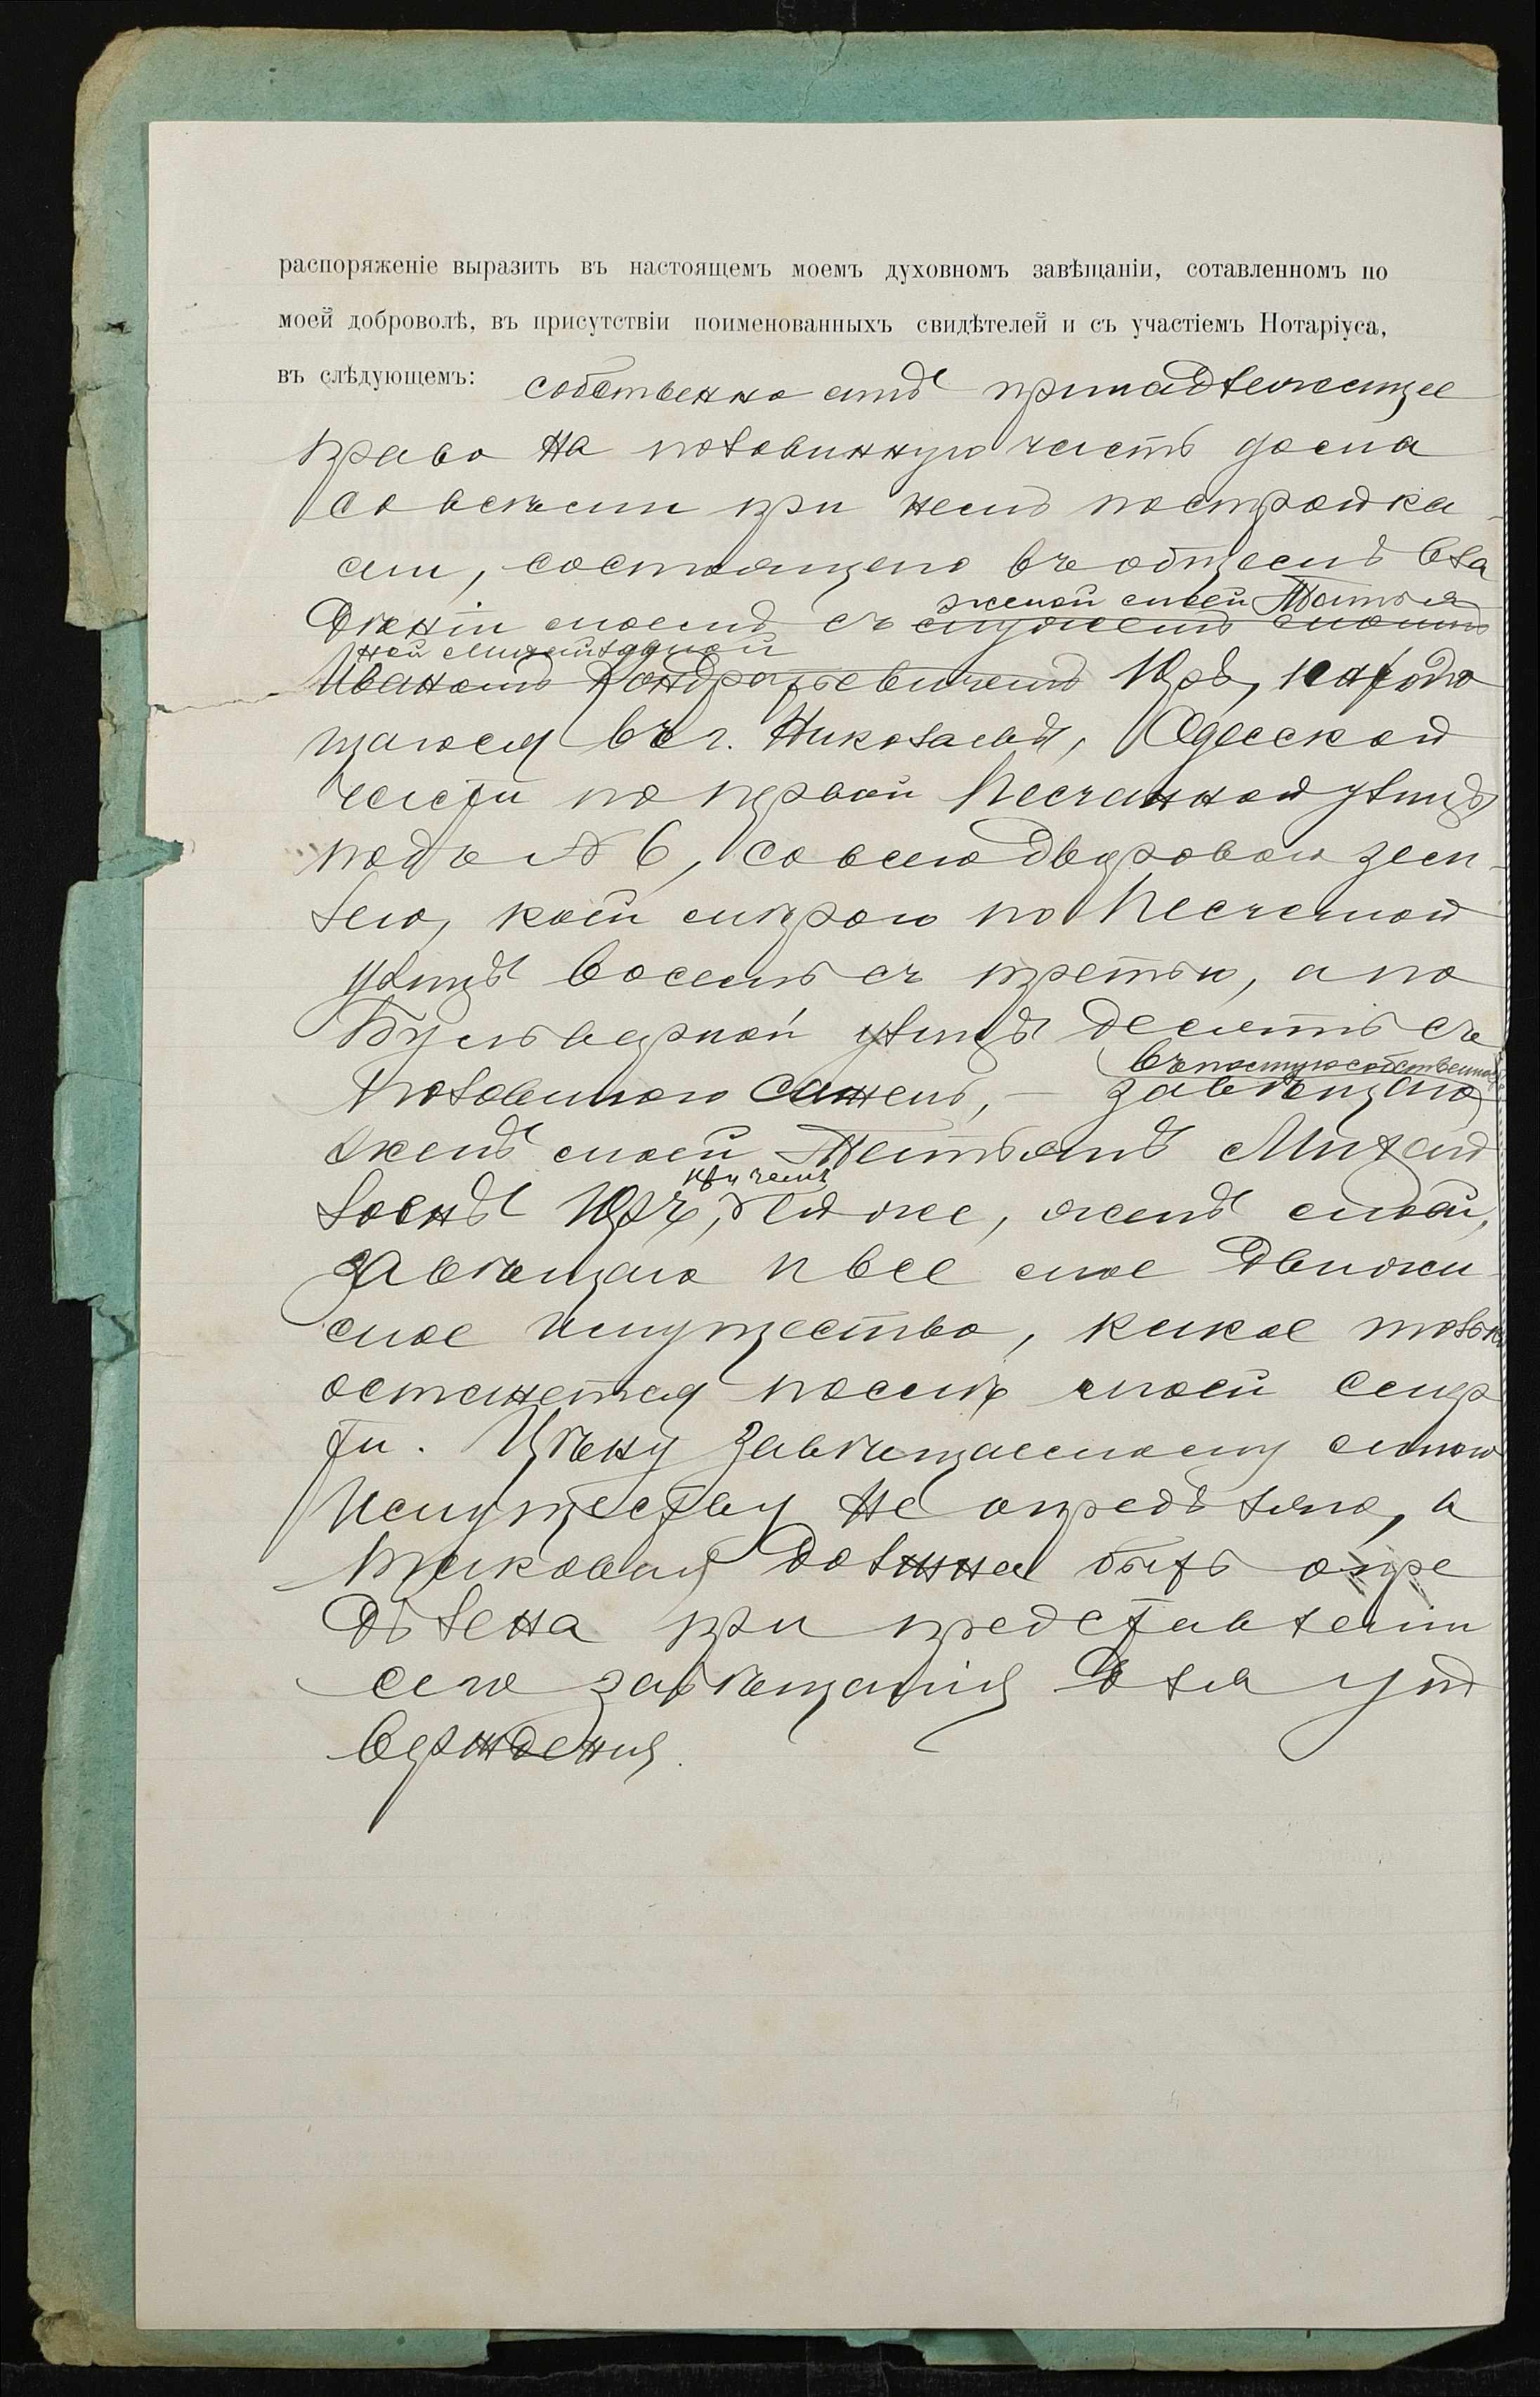 распоряженіе выразить въ настоящемъ моемъ духовномъ завѣщаніи, сотавленномъ по
моей доброволѣ, въ присутствіи поименованныхъ свидѣтелей и съ участіемъ Нотаріуса,
въ слѣдующемъ: собственно мнѣ принадлежащее
право на половинную часть дома
со всѣми при немъ постройка-
ми, состоящего въ общемъ вла
женой моей Татья
дѣніи моемъ съ мужемъ моимъ
ной Михайловной
Иваномъ Кондратьевичемъ Юръ, находя
щагося въ г. Николаевѣ, Одесской
части по первой Песчанной улицѣ
подъ № 6, со всею дворовою зем-
лею, коей мѣрою по Песчаной
улицѣ восемь съ третью, а по
Бульварной улицѣ десять съ
въ полную собственность
половиною сажень, — завѣщаю
женѣ моей Татьянѣ Михай
при чемъ
ловнѣ Юръ, ей же, женѣ моей,
завѣщаю и все мое движи-
мое имущество, какое только
останется послѣ моей смер
ти. Цѣну завѣщаемому мною
имуществу не опредѣляю, а
таковая должна быть опре
дѣлена при представленіи
сего завѣщанія для ут
вержденія.